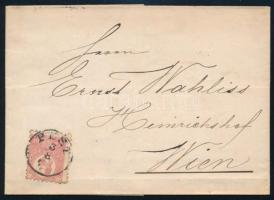 Herrn
Ernst Wahliss
Heinrichshof
Wien
PEST